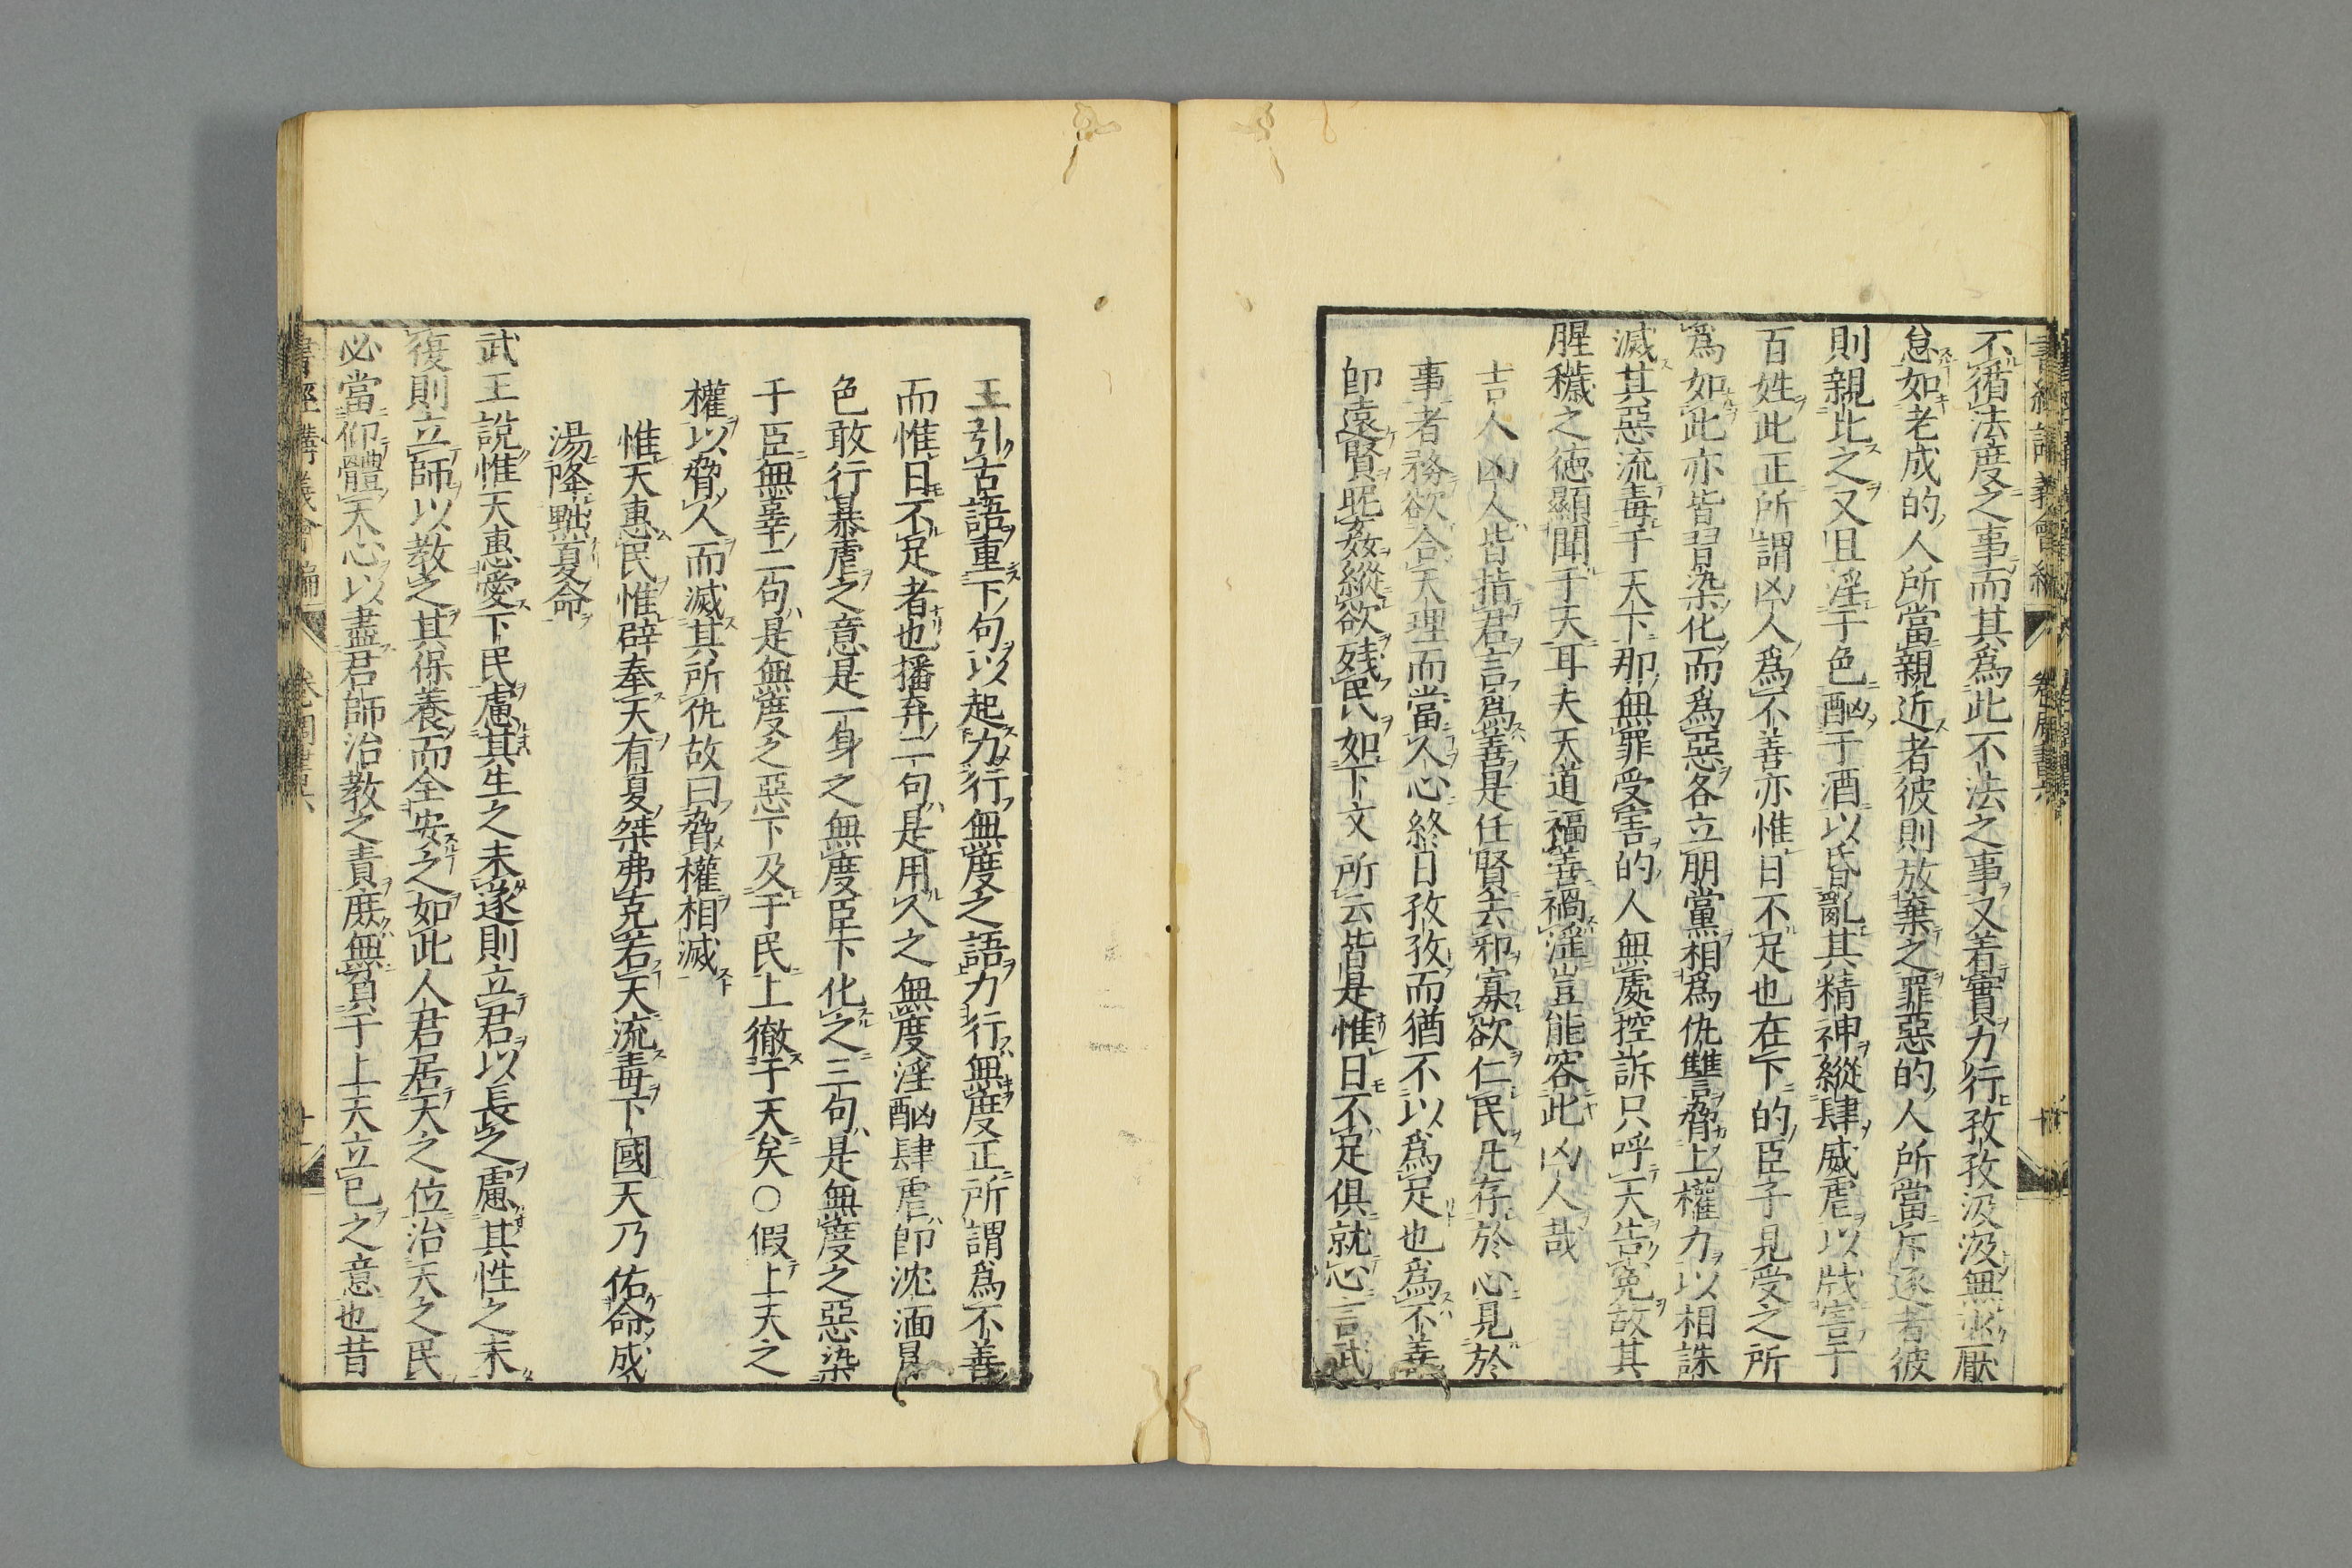 不循法度之事而其爲此不法之事又着實力行孜孜汲汲無厭
怠如老成的人所當親近者彼則放棄之罪惡的人所當斥逐者彼
則親比之又且淫于色酗于酒以昏亂其精神縱肆威虐以戕害于
百姓此正所謂凶人爲不善亦惟日不足也在下的臣子見受之所
爲如此亦皆習染化而爲惡各立朋黨相爲仇讐脅上權力以相誅
滅其惡流毒于天下那無罪受害的人無處控訴只呼天告冤故其
腥穢之徳顯聞于天耳夫天道福善禍淫豈能容此凶人哉
吉人凶人皆指君言爲善是任賢去邪寡欲仁民凡存於心見於
事者務欲合天理而當人心終日孜孜而猶不以爲足也爲不善
卽遠賢昵姦縱欲殘民如下文所云皆是惟日不足俱就心言武
王引古語重下句以起力行無度之語力行無度正所謂爲不善
而惟日不足者也播弃二句是用人之無度淫酗肆虐卽沈湎冒
色敢行暴虐之意是一身之無度臣下化之三句是無度之惡染
于臣無辜二句是無度之惡下及于民上徹于天矣○假上天之
權以脅人而滅其所仇故曰脅權相滅
惟天惠民惟辟奉天有夏桀弗克若天流毒下國天乃佑命成
湯降黜夏命
武王說惟天惠愛下民慮其生之未遂則立君以長之慮其性之未
復則立師以教之其保養而全安之如此人君居天之位治天之民
必當仰體天心以盡君師治教之責庶無負于上天立己之意也昔
書經講義會編 卷周書六 十一